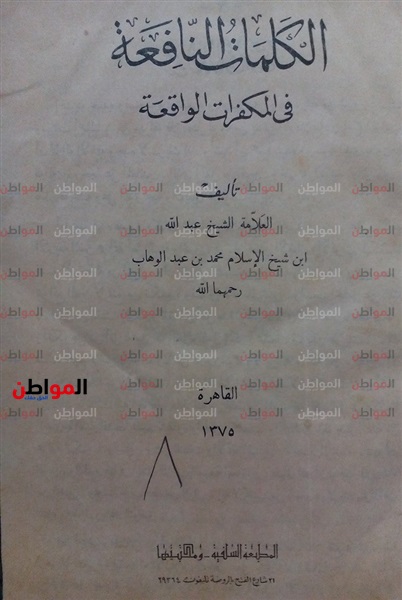 الكلمات النافعة
في المكفرات الواقعة
تأليف
العلامة الشيخ عبد الله
ابن شيخ الإسلام محمد بن عبد الوهاب
رحمهما الله
المواطن
القاهرة
١٣٧٥
٨
المطبعة السلفية - ومكتبتها
٢١ شارع الفتح بالروضة تليفون ٩٩٣٦٤